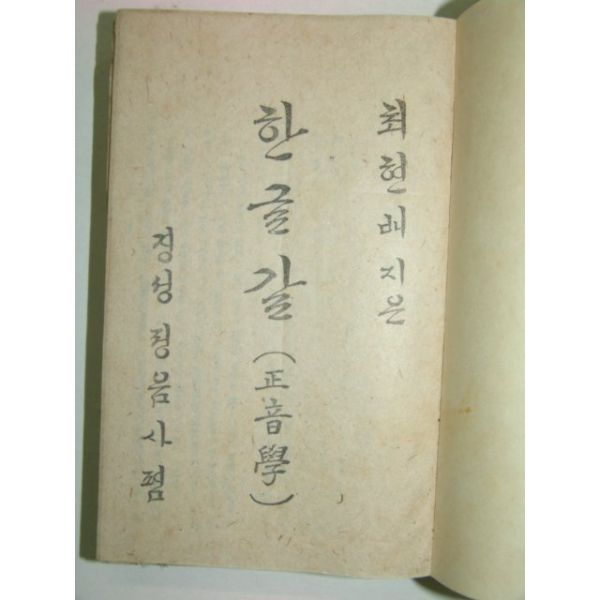 최현배 지은
한글갈(正音學)
경성 정음사 펴